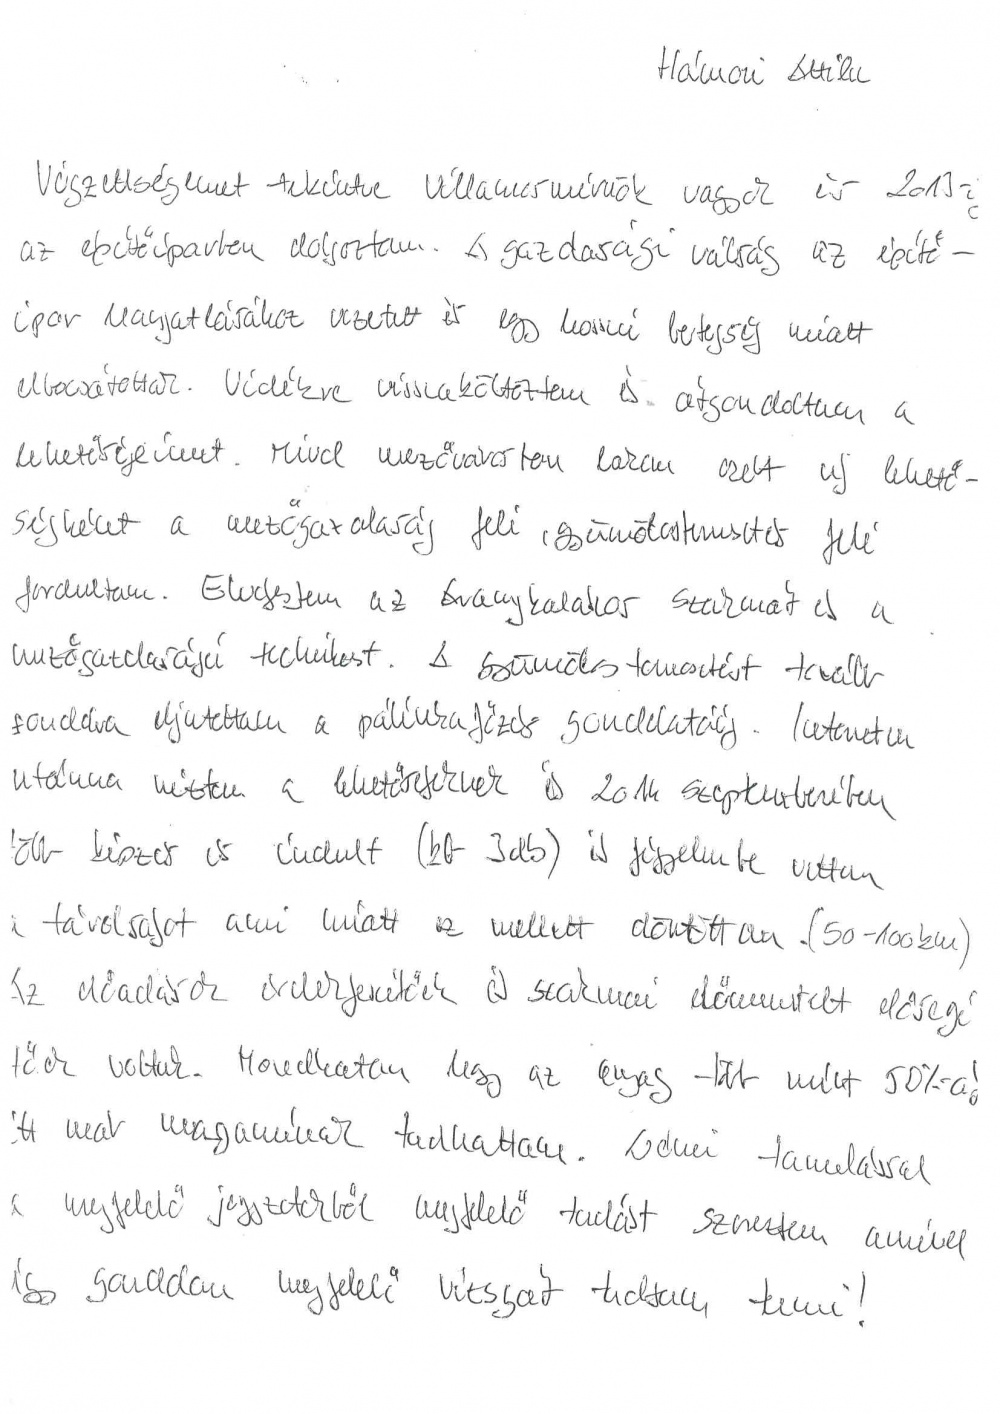 Hámori Attila
Végzettségemet tekintve villamosmérnök vagyok és 2013-ig
az építőiparban dolgoztam. A gazdasági válság az építő-
ipar hanyatlásához vezetett és egy hosszú betegség miatt
elbocsátottak. Vidékre visszaköltöztem és átgondoltam a
lehetőségeimet. Mivel mezővárosban lakom ezért új lehető-
ségként a mezőgazdaság felé, gyümölcstermesztés felé
fordultam. Elvégeztem az Aranykalászos szakmát és a
mezőgazdasági technikust. A gyümölcs termesztést tovább
gondolva eljutottam a pálinkafőzés gondolatáig. Interneten
utánna néztem a lehetőségeknek és 2014 szeptemberében
több képzés is indult (kb 3db) és figyelembe vettem
a távolságot ami miatt ez mellett döntöttem. (50-100km)
Az előadások érdekfeszítőek és szakmai előmenetelt elősegí
tőek voltak. Mondhatom hogy az anyag több mint 50%-át
itt már magaménak tudhattam. Otthoni tanulással
a megfelelő jegyzetekből megfelelő tudást szereztem amivel
úgy gondolom megfelelő vizsgát tudtam tenni!